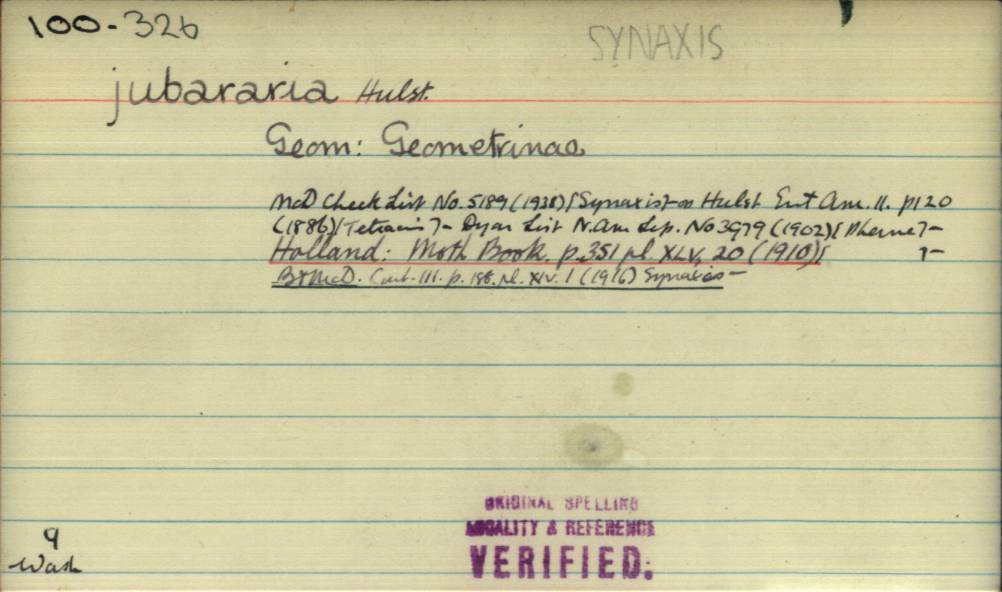 100-326
SYNAXIS
jubararia Hulst.
Geom: Geometrinae
McD Check List No. 5189 (1938) [Synaxis] - Hulst Ent Am. 11. p120
(1886) [Tetracis] - Dyar List N. Am Lep. No 3979 (1902) [Pherne] -
Holland: Moth Book. p.351 pl. XLV, 20 (1910) [ ] -
B & McD. Cont. III. p. 188. pl. XIV. 1 (1916) Synaxis -
ORIGINAL SPELLING
LOCALITY & REFERENCE
VERIFIED.
9
Wash